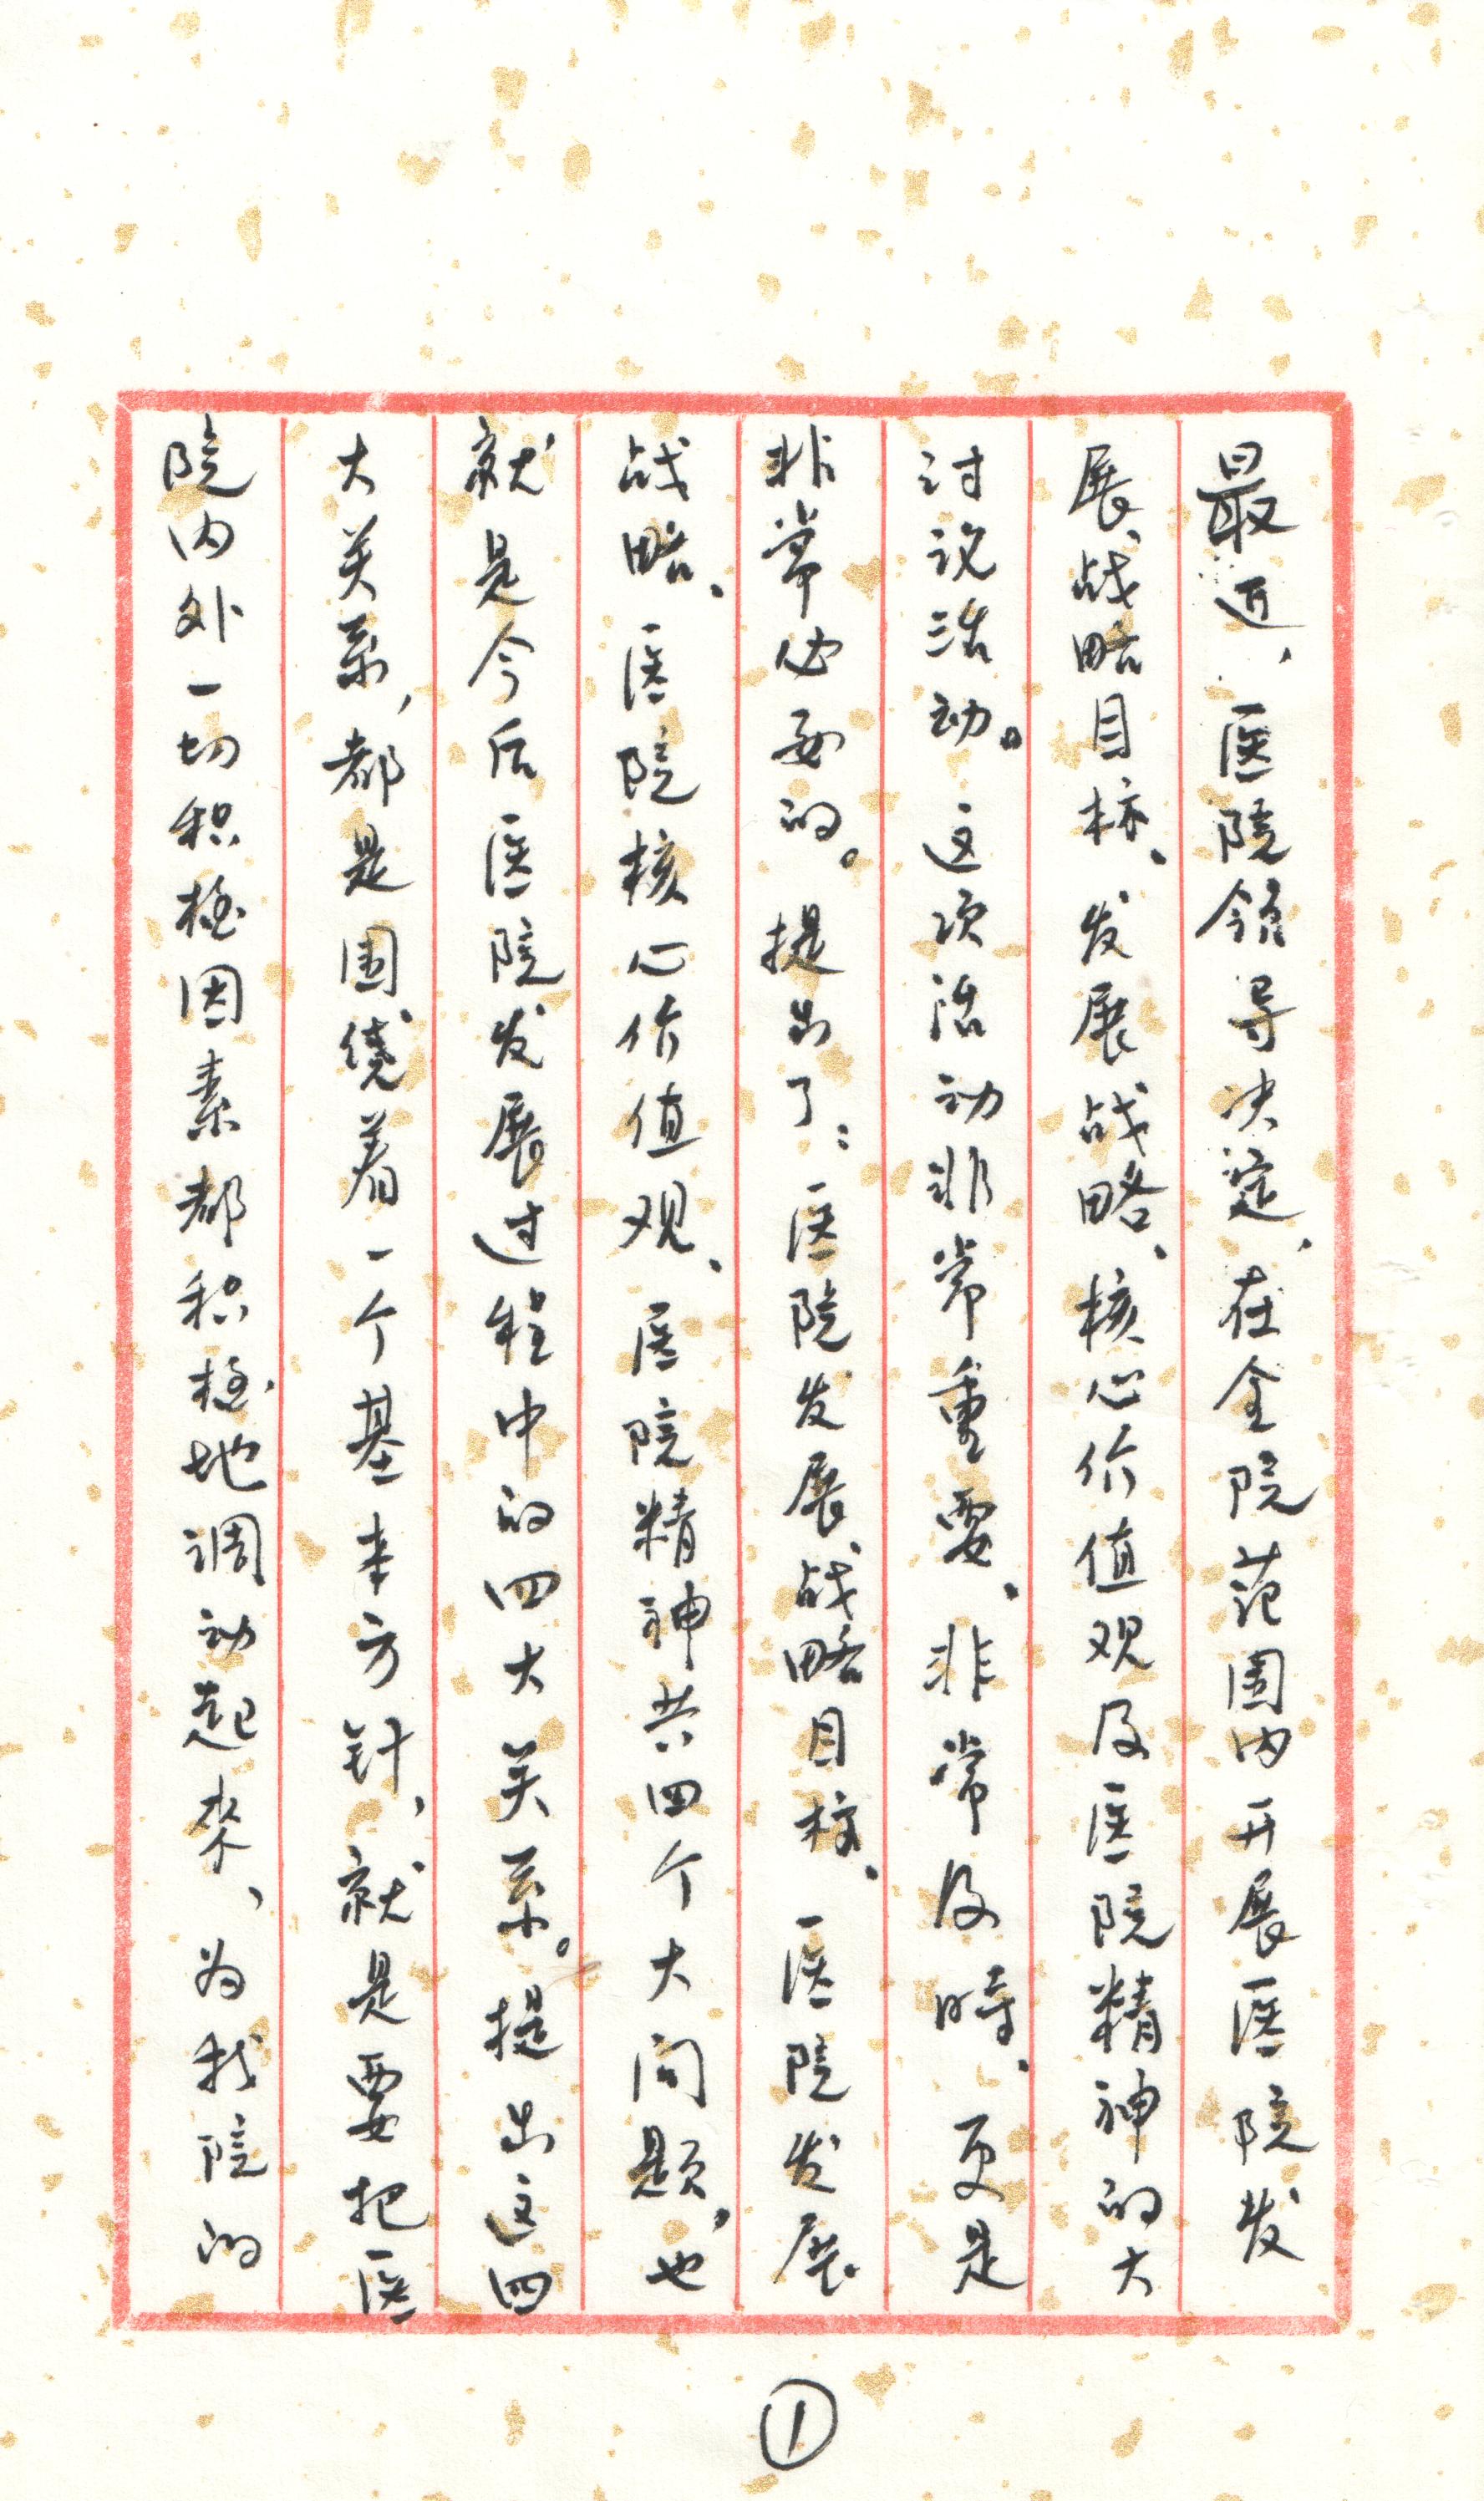 最近，医院领导决定，在全院范围内开展医院发
展战略目标、发展战略、核心价值观及医院精神的大
讨论活动。这项活动非常重要、非常及時、更是
非常必要的。提出了：医院发展战略目标、医院发展
战略、医院核心价值观、医院精神共四个大问题，也
就是今后医院发展过程中的四大关系。提出这四
大关系，都是围绕着一个基本方针，就是要把医
院内外一切积极因素都积极地调动起來，为我院的
①